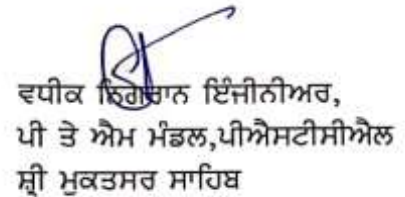 ਵਧੀਕ ਨਿਗਰਾਨ ਇੰਜੀਨੀਅਰ,
ਪੀ ਤੇ ਐਮ ਮੰਡਲ,ਪੀਐਸਟੀਸੀਐਲ
ਸ਼੍ਰੀ ਮੁਕਤਸਰ ਸਾਹਿਬ